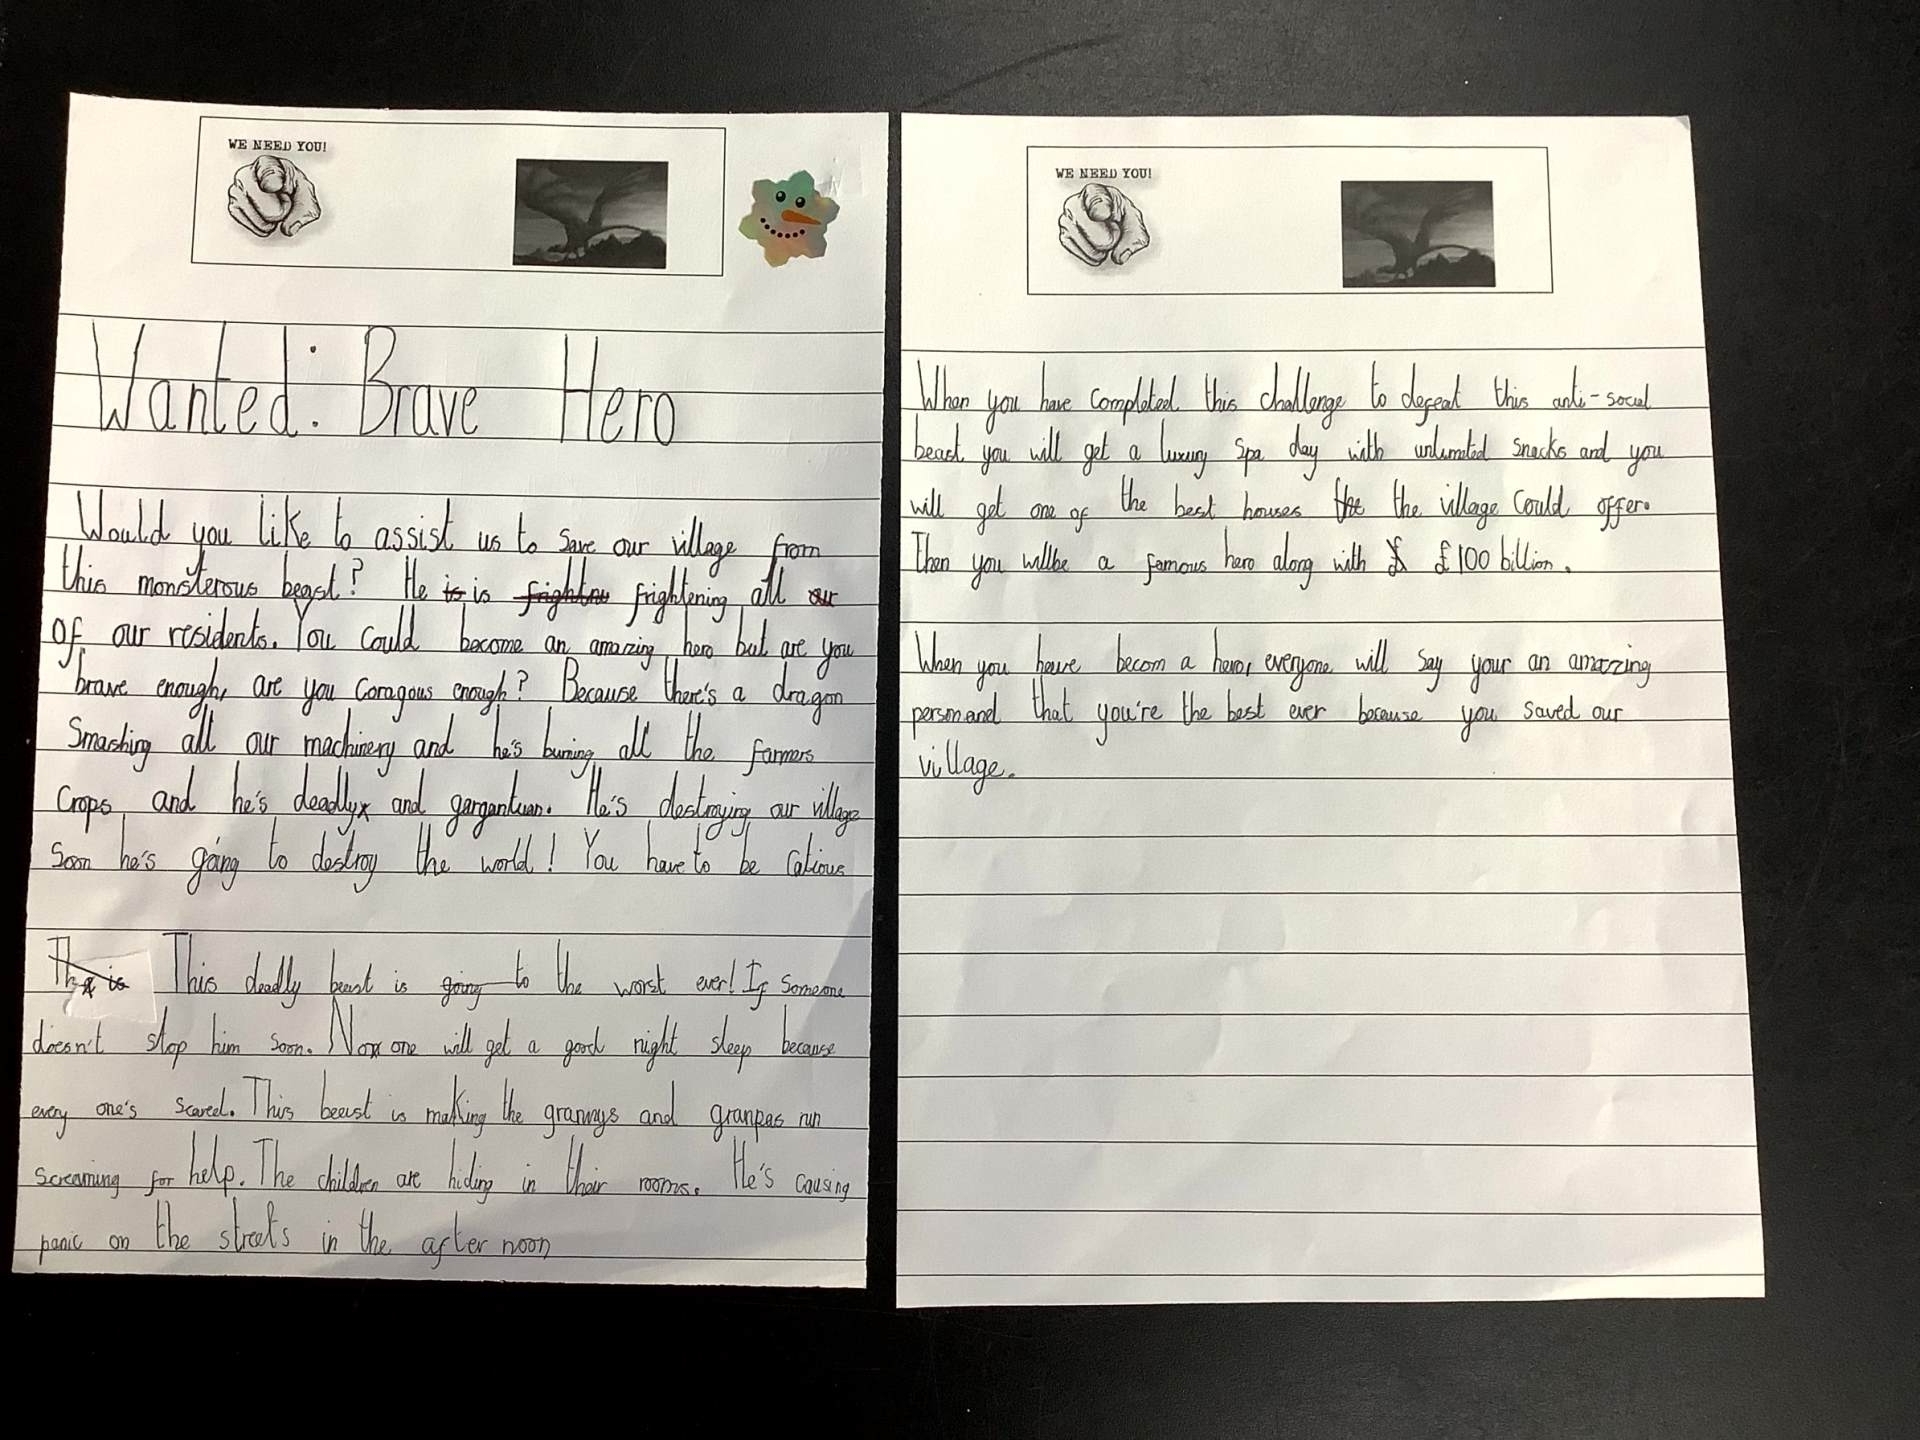 WE NEED YOU!
Wanted: Brave Hero
Would you like to assist us to save our village from
this monsterous beast? He is is frightnu frightening all our
of our residents. You could become an amazing hero but are you
brave enough, are you coragous enough? Because there's a dragon
smashing all our machinery and he's burning all the farmers
crops and he's deadly and gargantuan. He's destroying our village
soon he's going to destroy the world! You have to be catious
This deadly beast is going to the worst ever! If someone
doesn't stop him soon. No one will get a good night sleep because
every one's scared. This beast is making the grannys and granpas run
screaming for help. The children are hiding in their rooms. He's causing
panic on the streets in the after noon
WE NEED YOU!
When you have completed this challenge to defeat this anti-social
beast you will get a luxury spa day with unlimated snacks and you
will get one of the best houses the the village could offer.
Then you willbe a famous hero along with £ £100 billion.
When you have becom a hero, everyone will say your an amazzing
person and that you're the best ever because you saved our
village.